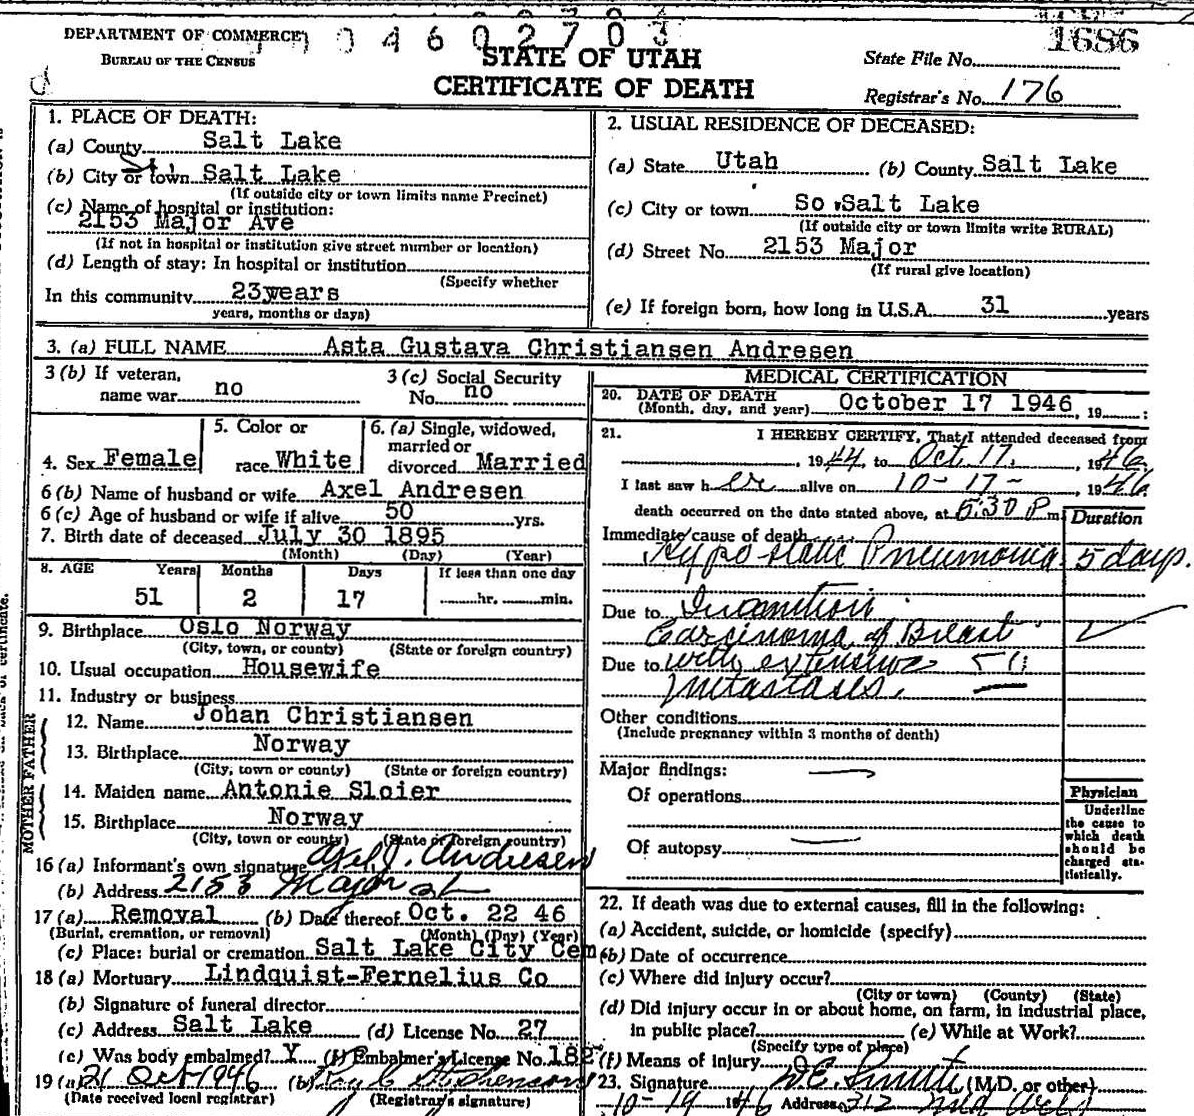 DEPARTMENT OF COMMERCE
BUREAU OF THE CENSUS
04602703
STATE OF UTAH
CERTIFICATE OF DEATH
1686
State File No.
Registrar's No. 176
1. PLACE OF DEATH:
(a) County Salt Lake
(b) City or town Salt Lake
(If outside city or town limits name Precinct)
(c) Name of hospital or institution:
2153 Major Ave
(If not in hospital or institution give street number or location)
(d) Length of stay: In hospital or institution
(Specify whether
In this community 23years
years, months or days)
2. USUAL RESIDENCE OF DECEASED:
(a) State Utah (b) County Salt Lake
(c) City or town So.Salt Lake
(If outside city or town limits write RURAL)
(d) Street No. 2153 Major
(If rural give location)
(e) If foreign born, how long in U.S.A. 31 years
3. (a) FULL NAME Asta Gustava Christiansen Andresen
3 (b) If veteran,
name war no
3 (c) Social Security
No. no
4. Sex Female
5. Color or
race White
6. (a) Single, widowed,
married or
divorced Married
6 (b) Name of husband or wife Axel Andresen
6 (c) Age of husband or wife if alive 50 yrs.
7. Birth date of deceased July 30 1895
(Month) (Day) (Year)
8. AGE Years Months Days If less than one day
51 2 17 hr. min.
9. Birthplace Oslo Norway
(City, town, or county) (State or foreign country)
10. Usual occupation Housewife
11. Industry or business
MOTHER FATHER
12. Name Johan Christiansen
13. Birthplace Norway
(City, town or county) (State or foreign country)
14. Maiden name Antonie Sloier
15. Birthplace Norway
(City, town or county) (State or foreign country)
16 (a) Informant's own signature Axel J. Andresen
(b) Address 2153 Major St
17 (a) Removal (b) Date thereof Oct. 22 46
(Burial, cremation, or removal) (Month) (Day) (Year)
(c) Place: burial or cremation Salt Lake City Cem
18 (a) Mortuary Lindquist-Fernelius Co
(b) Signature of funeral director
(c) Address Salt Lake (d) License No. 27
(e) Was body embalmed? Y (f) Embalmer's License No. 182
19 (a) 21 Oct 1946 (b)
(Date received local registrar) (Registrar's signature)
MEDICAL CERTIFICATION
20. DATE OF DEATH
(Month, day, and year) October 17 1946, 19 :
21. I HEREBY CERTIFY, That I attended deceased from
, 1944, to Oct. 17, 1946
I last saw her alive on 10-17-, 1946
death occurred on the date stated above, at 6:30 P m
Duration
Immediate cause of death
Hypostatic Pneumonia 5 days.
Due to Inanition
Carcinoma of Breast
Due to with extensive
metastases.
Other conditions
(Include pregnancy within 3 months of death)
Major findings:
Of operations
Of autopsy
Physician
Underline
the cause to
which death
should be
charged sta-
tistically.
22. If death was due to external causes, fill in the following:
(a) Accident, suicide, or homicide (specify)
(b) Date of occurrence
(c) Where did injury occur?
(City or town) (County) (State)
(d) Did injury occur in or about home, on farm, in industrial place,
in public place? (e) While at Work?
(Specify type of place)
(f) Means of injury
23. Signature (M.D. or other)
10-19 1946 Address 312
certificate.